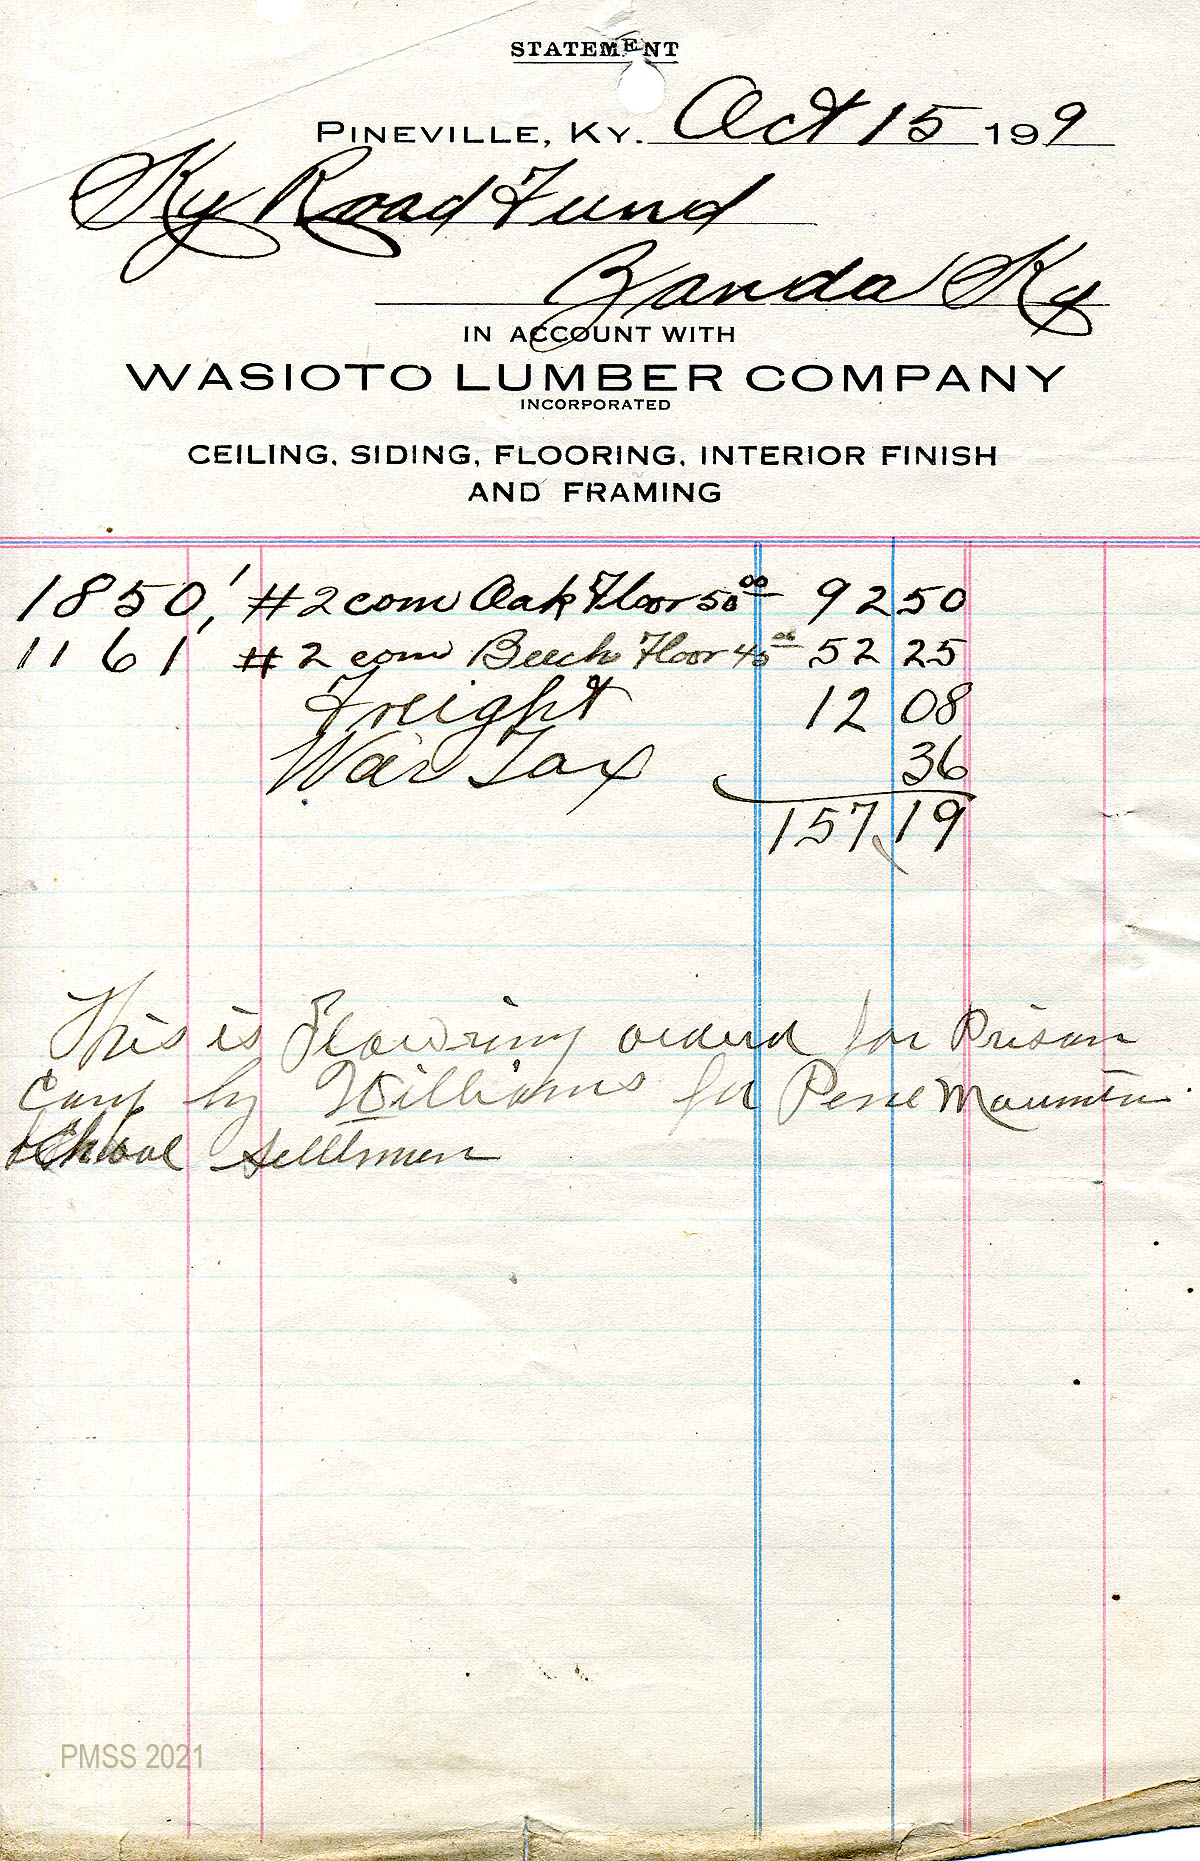 STATEMENT
PINEVILLE, KY. Oct 15 199
Ky Road Fund
Zanda Ky
IN ACCOUNT WITH
WASIOTO LUMBER COMPANY
INCORPORATED
CEILING, SIDING, FLOORING, INTERIOR FINISH
AND FRAMING
1850,' #2 com Oak Floor 50 00 92 50
1161' #2 com Beech Floor 45 00 52 25
Freight 12 08
War Tax 36
157.19
This is Flowring orderd for Prison
Camp by Williams for Pine Mountin
School Settlmen
PMSS 2021